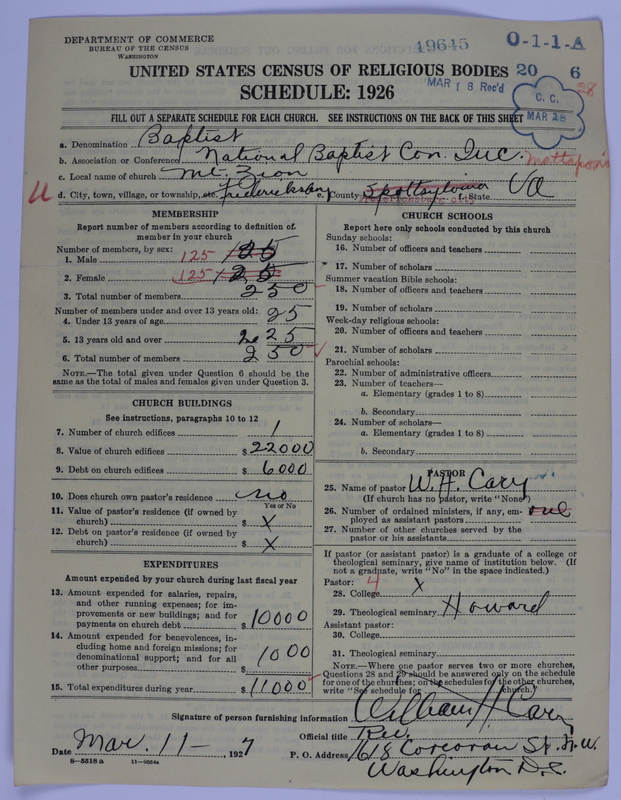 DEPARTMENT OF COMMERCE
BUREAU OF THE CENSUS
WASHINGTON
19645
O-1-1-A
UNITED STATES CENSUS OF RELIGIOUS BODIES 20 6
SCHEDULE: 1926
MAR 18 Rec'd
28
C. C.
MAR 28
FILL OUT A SEPARATE SCHEDULE FOR EACH CHURCH. SEE INSTRUCTIONS ON THE BACK OF THIS SHEET
a. Denomination Baptist
b. Association or Conference National Baptist Con. Inc. Mattaponi
c. Local name of church Mt. Zion
d. City, town, village, or township, etc. Fredericksburg e. County Spottsylvania f. State Va
Fredericksburg city
MEMBERSHIP
Report number of members according to definition of
member in your church
Number of members, by sex:
1. Male 125 125
2. Female 125 125
3. Total number of members 250
Number of members under and over 13 years old:
4. Under 13 years of age 25
5. 13 years old and over 225
6. Total number of members 250
NOTE.—The total given under Question 6 should be
same as the total of males and females given under Question 3.
CHURCH BUILDINGS
See instructions, paragraphs 10 to 12
7. Number of church edifices 1
8. Value of church edifices $ 22000
9. Debt on church edifices $ 6000
10. Does church own pastor's residence No
Yes or No
11. Value of pastor's residence (if owned by
church) $ X
12. Debt on pastor's residence (if owned by
church) $ X
EXPENDITURES
Amount expended by your church during last fiscal year
13. Amount expended for salaries, repairs,
and other running expenses; for im-
provements or new buildings; and for
payments on church debt $ 10000
14. Amount expended for benevolences, in-
cluding home and foreign missions; for
denominational support; and for all
other purposes $ 1000
15. Total expenditures during year $ 11000
CHURCH SCHOOLS
Report here only schools conducted by this church
Sunday schools:
16. Number of officers and teachers
17. Number of scholars
Summer vacation Bible schools:
18. Number of officers and teachers
19. Number of scholars
Week-day religious schools:
20. Number of officers and teachers
21. Number of scholars
Parochial schools:
22. Number of administrative officers
23. Number of teachers—
a. Elementary (grades 1 to 8)
b. Secondary
24. Number of scholars—
a. Elementary (grades 1 to 8)
b. Secondary
PASTOR
25. Name of pastor W. H. Cary
(If church has no pastor, write "None")
26. Number of ordained ministers, if any, em-
ployed as assistant pastors one
27. Number of other churches served by the
pastor or his assistants
If pastor (or assistant pastor) is a graduate of a college or
theological seminary, give name of institution below. (If
not a graduate, write "No" in the space indicated.)
Pastor: 4
28. College X
29. Theological seminary Howard
Assistant pastor:
30. College
31. Theological seminary
NOTE.—Where one pastor serves two or more churches,
Questions 28 and 29 should be answered only on the schedule
for one of the churches; on the schedules for the other churches,
write "See schedule for church."
Signature of person furnishing information William H Cary
Official title Rev.
Date Mar. 11— , 1927 P. O. Address 1618 Corcoran St. N.W.
Washington D.C.
8—5518 a 11—9864a